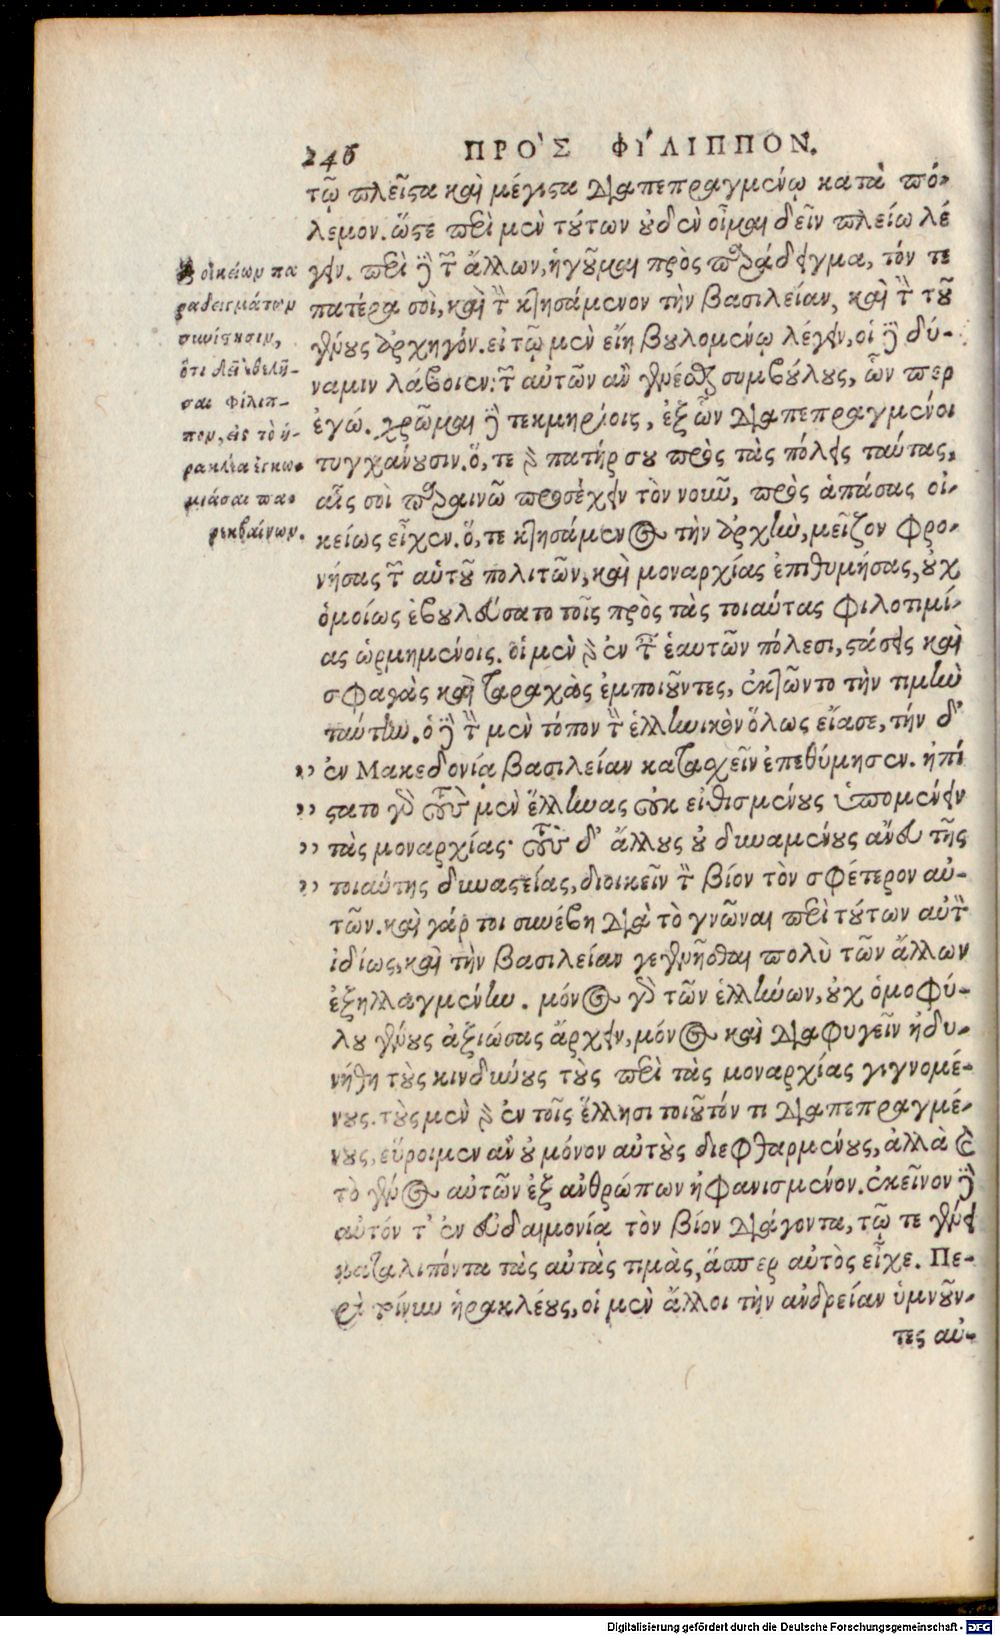 246 ΠΡΟ'Σ ΦΙ'ΛΙΠΠΟΝ.
τῷ πλεῖστα καὶ μέγιστα διαπεπραγμένῳ κατὰ πό-
λεμον. ὥστε περὶ μὲν τούτων οὐδὲν οἶμαι δεῖν πλείω λέ
γειν. περὶ δὲ τῶν ἄλλων, ἡγοῦμαι πρὸς παράδειγμα, τόν τε
πατέρα σοὶ, καὶ τὸν κτησάμενον τὴν βασιλείαν, καὶ τὸν τοῦ
γένους ἀρχηγόν. εἰ τῷ μὲν εἴη βουλομένῳ λέγειν, οἱ δὲ δύ-
ναμιν λάβοιεν: τῶν αὐτῶν ἂν γενέσθαι συμβούλους, ὧν περ
ἐγώ. χρῶμαι δὲ τεκμηρίοις, ἐξ ὧν διαπεπραγμένοι
τυγχάνουσιν. ὅ, τε γὰρ πατήρ σου πρὸς τὰς πόλεις ταύτας,
αἷς σοὶ παραινῶ προσέχειν τὸν νοῦν, πρὸς ἁπάσας οἰ-
κείως εἶχεν. ὅ, τε κτησάμενος τὴν ἀρχὴν, μεῖζον φρο-
νήσας τῶν αὑτοῦ πολιτῶν, καὶ μοναρχίας ἐπιθυμήσας, οὐχ
ὁμοίως ἐβουλεύσατο τοῖς πρὸς τὰς τοιαύτας φιλοτιμί-
ας ὡρμημένοις. οἱ μὲν γὰρ ἐν ταῖς ἑαυτῶν πόλεσι, στάσεις καὶ
σφαγὰς καὶ ταραχὰς ἐμποιοῦντες, ἐκτῶντο τὴν τιμὴν
ταύτην. ὁ δὲ τὸν μὲν τόπον τὸν ἑλληνικὸν ὅλως εἴασε, τήν δ'
,, ἐν Μακεδονίᾳ βασιλείαν κατασχεῖν ἐπεθύμησεν. ἠπί
,, στατο γὰρ τοὺς μὲν ἕλληνας οὐκ εἰθισμένους ὑπομένειν
,, τὰς μοναρχίας· τοὺς δ' ἄλλους οὐ δυναμένους ἄνευ τῆς
,, τοιαύτης δυναστείας, διοικεῖν τὸν βίον τὸν σφέτερον αὐ-
τῶν. καὶ γάρ τοι συνέβη διὰ τὸ γνῶναι περὶ τούτων αὐτὸν
ἰδίως, καὶ τὴν βασιλείαν γεγενῆσθαι πολὺ τῶν ἄλλων
ἐξηλλαγμένην. μόνος γὰρ τῶν ἑλλήνων, οὐχ ὁμοφύ-
λου γένους ἀξιώσας ἄρχειν, μόνος καὶ διαφυγεῖν ἠδυ-
νήθη τοὺς κινδύνους τοὺς περὶ τὰς μοναρχίας γιγνομέ-
νους. τοὺς μὲν γὰρ ἐν τοῖς ἕλλησι τοιοῦτόν τι διαπεπραγμέ-
νους, εὕροιμεν ἂν οὐ μόνον αὐτοὺς διεφθαρμένους, ἀλλὰ καὶ
τὸ γένος αὐτῶν ἐξ ἀνθρώπων ἠφανισμένον. ἐκεῖνον δὲ
αὐτόν τ' ἐν εὐδαιμονίᾳ τὸν βίον διάγοντα, τῷ τε γένει
καταλιπόντα τὰς αὐτὰς τιμὰς, ἅσπερ αὐτὸς εἶχε. Πε-
ρὶ τοίνυν ἡρακλέους, οἱ μὲν ἄλλοι τὴν ἀνδρείαν ὑμνοῦν-
τες αὐ-
οἰκείων πα
ραδειγμάτων
συνίστησιν,
ὅτι δεῖ βελῆ-
σαι φίλιπ-
πον, εἰς τὸ ἡ-
ρακλέα ἐγκω-
μιάσαι πα-
ρεκβαίνων.
Digitalisierung gefördert durch die Deutsche Forschungsgemeinschaft - DFG